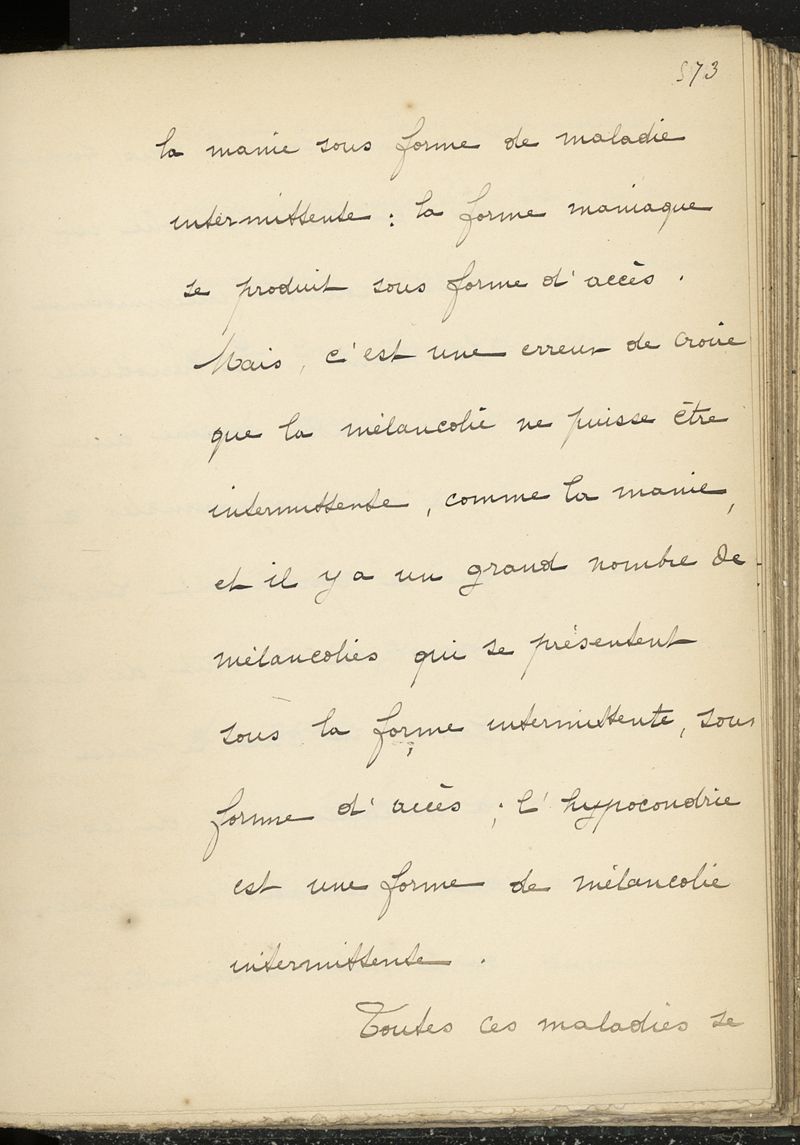 573
la manie sous forme de maladie
intermittente : la forme maniaque
se produit sous forme d'accès.
Mais, c'est une erreur de croire
que la mélancolie ne puisse être
intermittente, comme la manie,
et il y a un grand nombre de
mélancolies qui se présentent
sous la forme intermittente, sous
forme d'accès ; l'hypocondrie
est une forme de mélancolie
intermittente.
Toutes ces maladies se